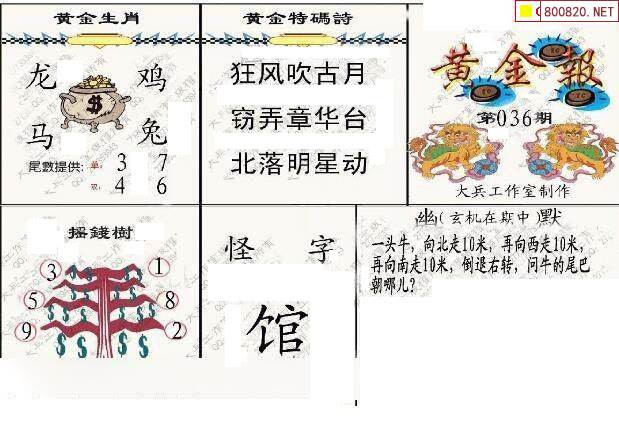 800820.NET
黄金生肖
龙 鸡
马 兔
尾數提供: 单: 3 7
双: 4 6
黄金特碼詩
狂风吹古月
窃弄章华台
北落明星动
黄金報
第036期
大兵工作室制作
摇錢樹
3 1
5 8
9 2
怪 字
馆
幽(玄机在其中)默
一头牛，向北走10米，再向西走10米，
再向南走10米，倒退右转，问牛的尾巴
朝哪儿？